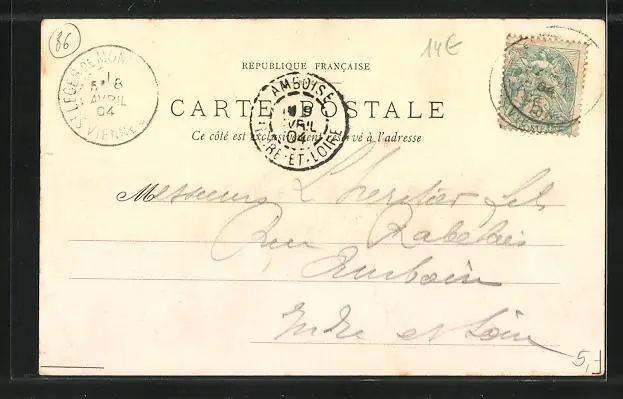 86
14€
RÉPUBLIQUE FRANÇAISE
ST LEGER DE MONT
8
AVRIL
04
VIENNE
AMBOISE
9
AVRIL
04
INDRE-ET-LOIRE
CARTE POSTALE
Ce côté est exclusivement réservé à l'adresse
Messieurs L'heritier fils
Rue Rabelais
Amboise
Indre et Loire
5,-